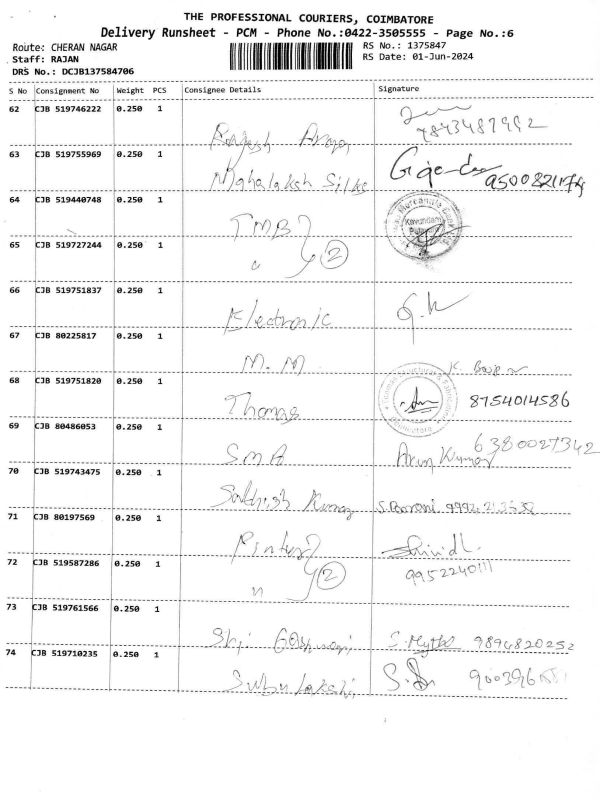 THE PROFESSIONAL COURIERS, COIMBATORE
Delivery Runsheet - PCM - Phone No.:0422-3505555 - Page No.:6
Route: CHERAN NAGAR RS No.: 1375847
Staff: RAJAN RS Date: 01-Jun-2024
DRS No.: DCJB137584706
S No Consignment No Weight PCS Consignee Details Signature
62 CJB 519746222 0.250 1
7843487992
63 CJB 519755969 0.250 1
Mahalaksh Silks
64 CJB 519440748 0.250 1
TMB
65 CJB 519727244 0.250 1
2
66 CJB 519751837 0.250 1
Electronic
67 CJB 80225817 0.250 1
M.M
68 CJB 519751820 0.250 1
Thomas 8754014586
69 CJB 80486053 0.250 1
SMA Arun Kumar 6380027342
70 CJB 519743475 0.250 1
Sathish Kumar
71 CJB 80197569 0.250 1
72 CJB 519587286 0.250 1
2
73 CJB 519761566 0.250 1
9894820252
74 CJB 519710235 0.250 1